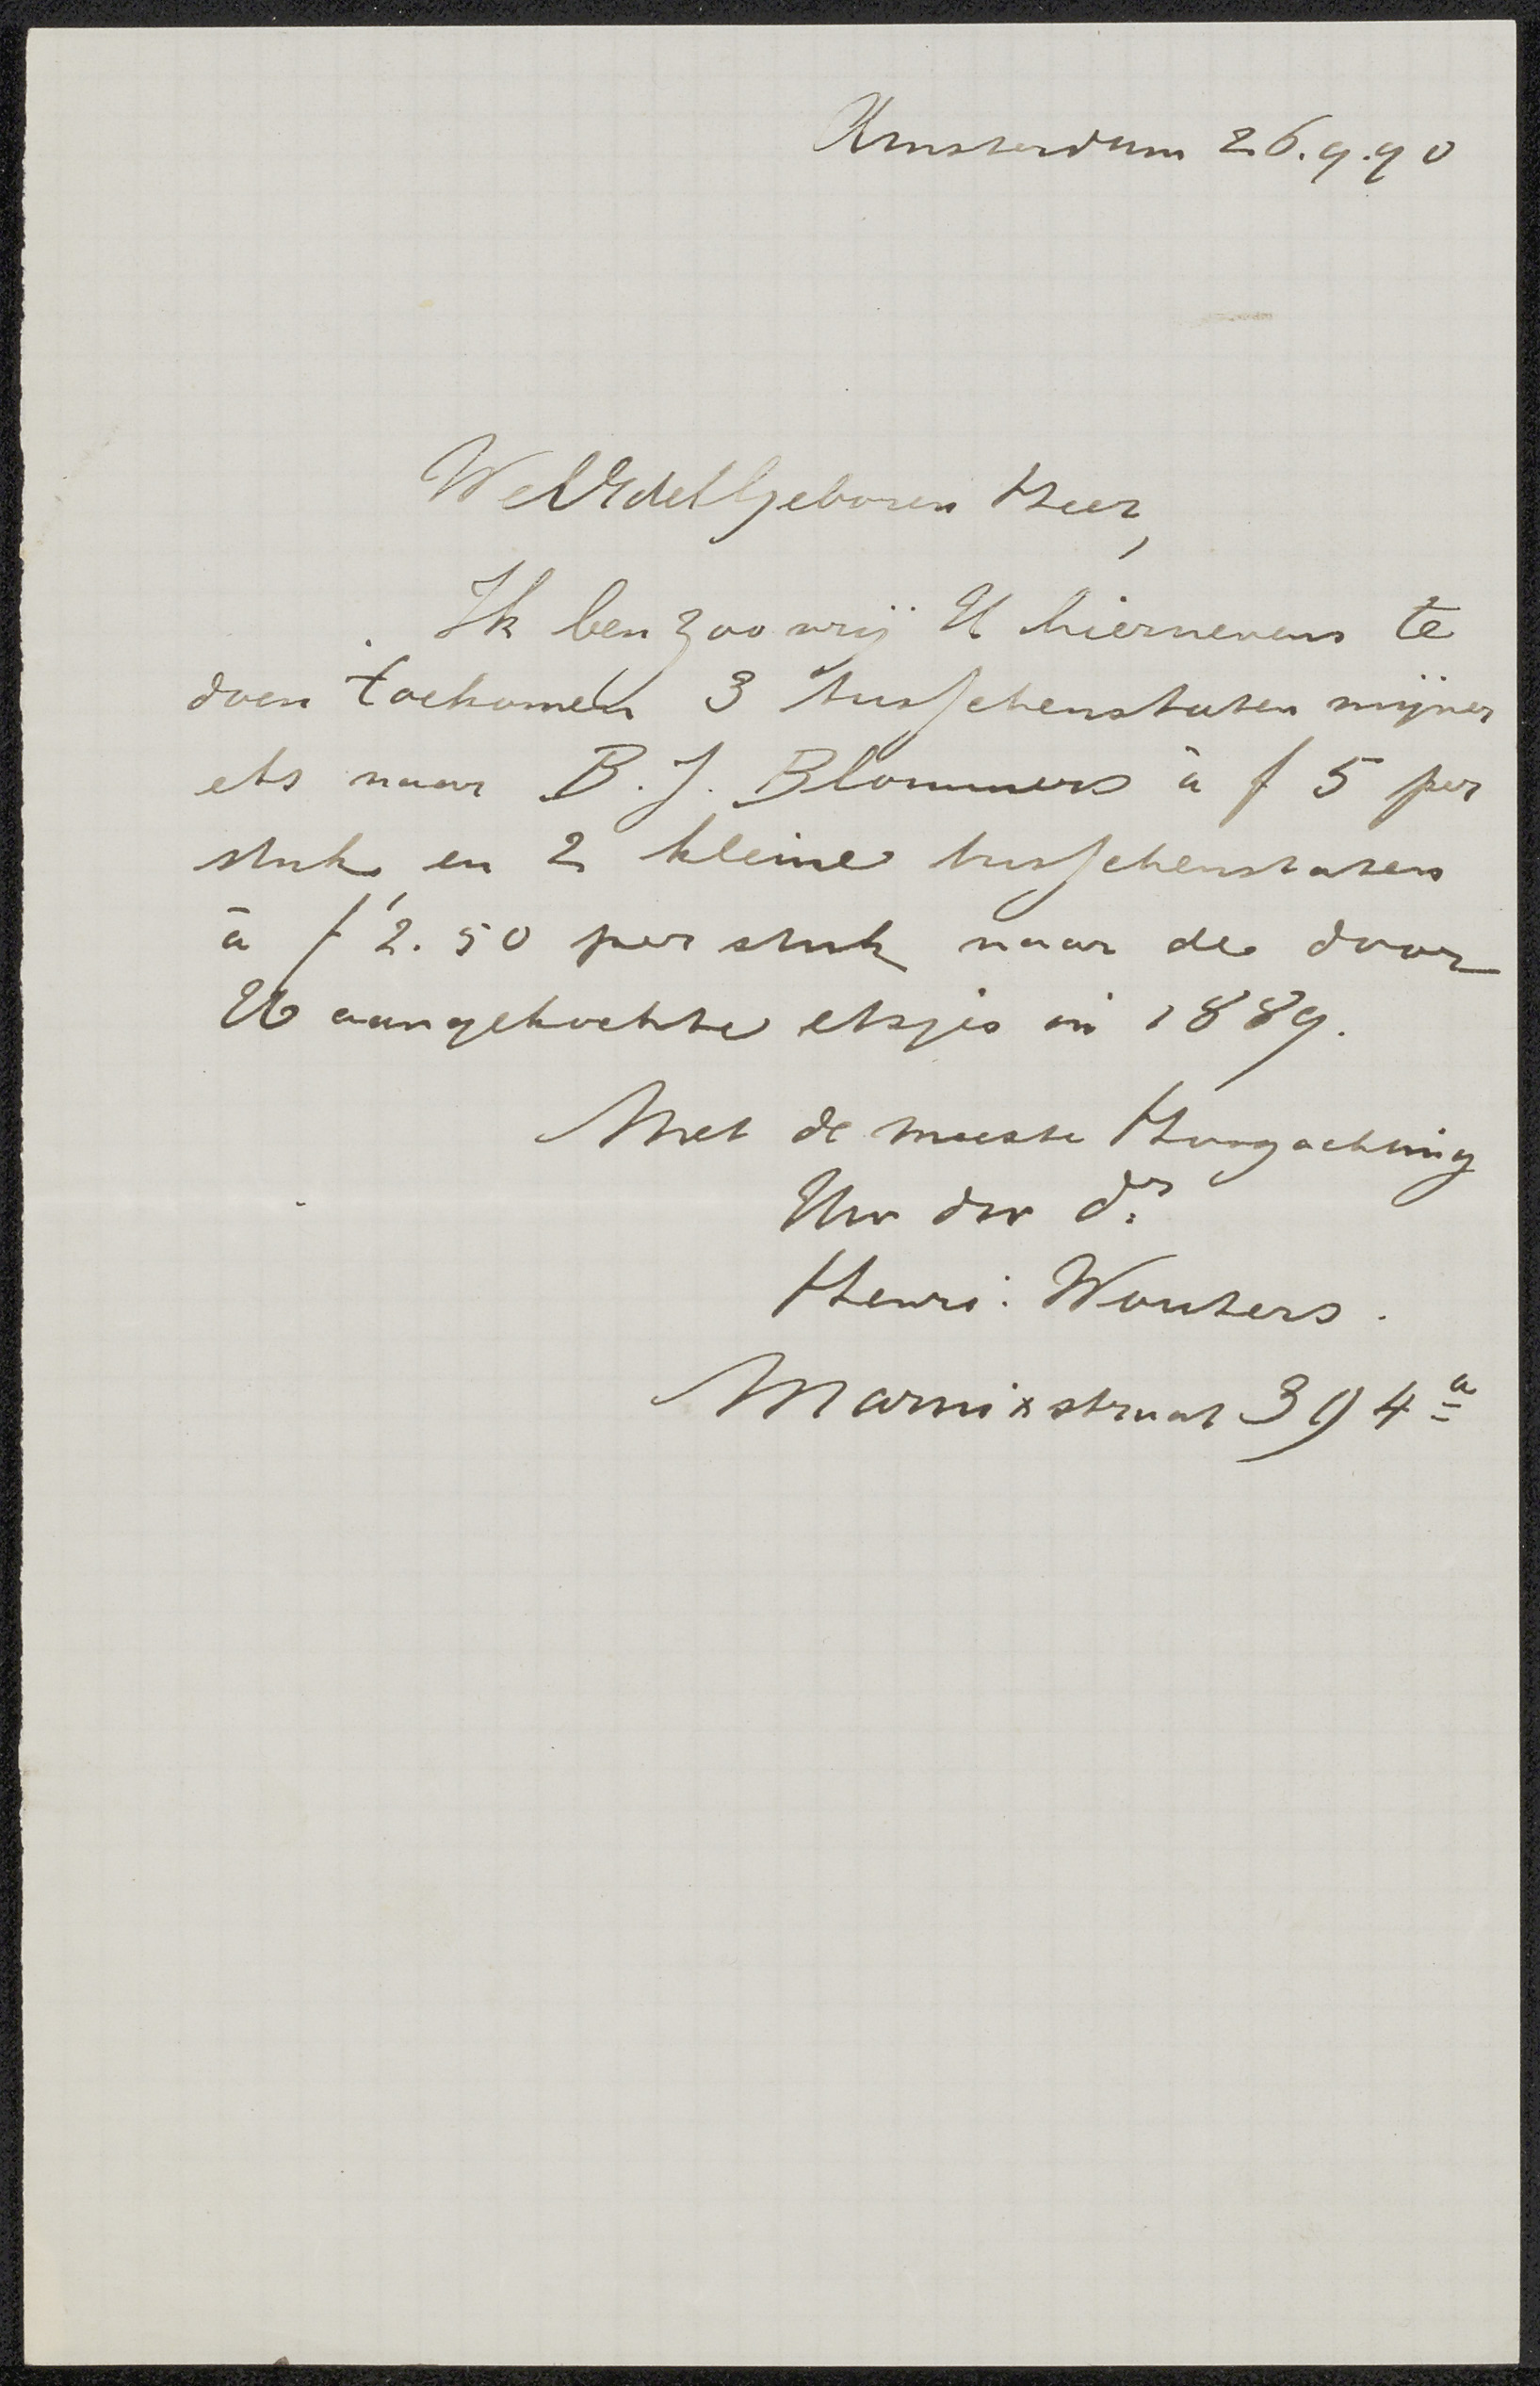 Amsterdam 26.9.90
WelEdelGeboren Heer,
Ik ben zoo vrij U hiernevens te
doen toekomen 3 tusschenstaten mijner
ets naar B.J. Blommers à f 5 per
stuk en 2 kleine tusschenstaten
à f 2.50 per stuk naar de door
U aangekochte etsjes in 1889.
Met de meeste Hoogachting
Uw dw dr
Henri: Wouters.
Marnixstraat 394a